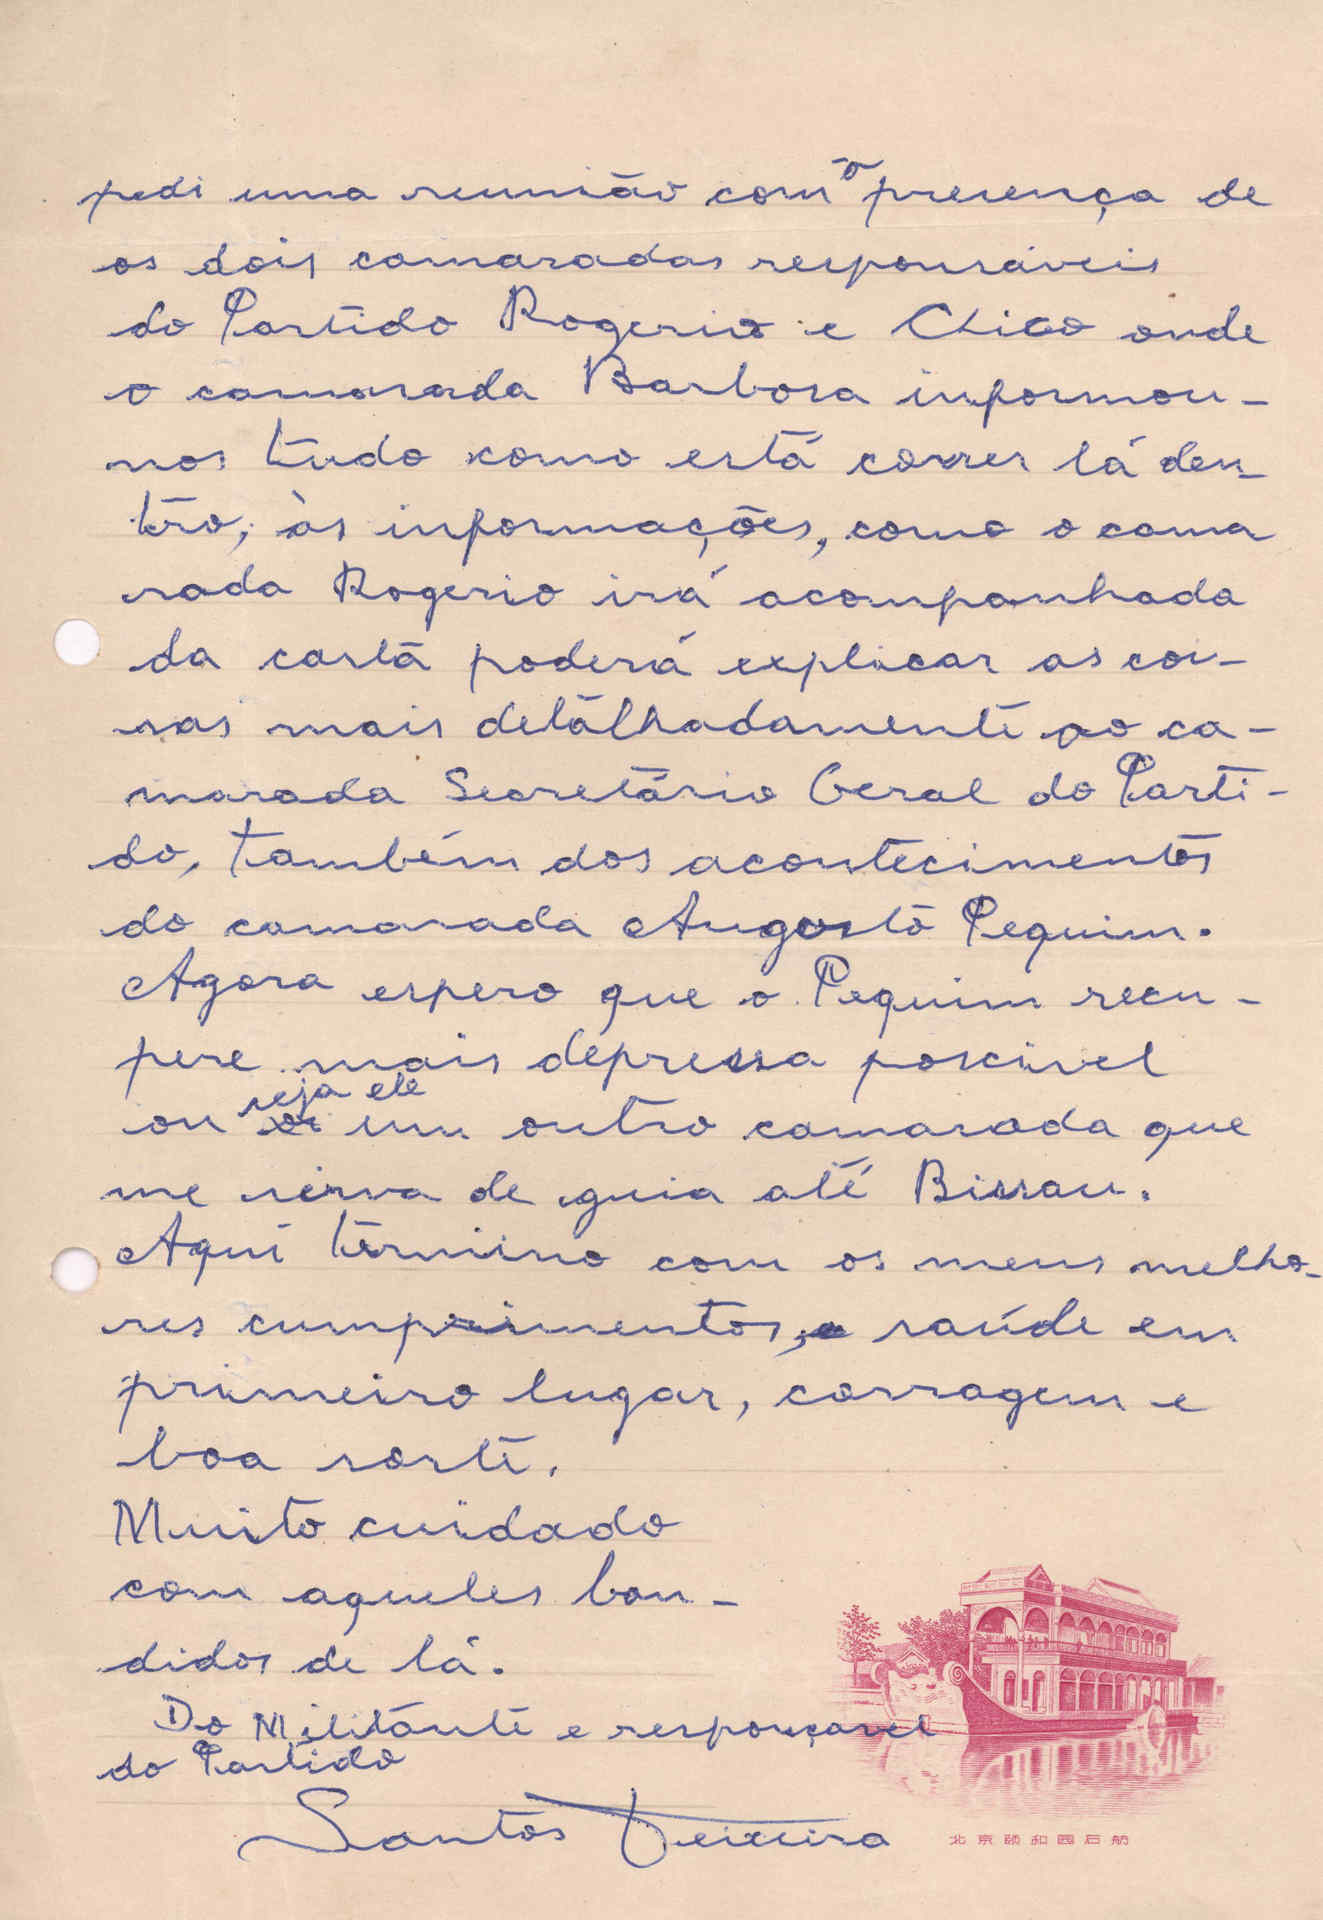 pedi uma reunião com o presença de
os dois camaradas responsáveis
do Partido Rogerio e Chico onde
o camarada Barbosa informou-
nos tudo como está correr lá den-
tro, às informações, como o cama
rada Rogerio irá acompanhada
da carta poderá explicar as coi-
sas mais detalhadamente ao ca-
marada Secretário Geral do Parti-
do, também dos acontecimentos
do camarada Augosto Pequim.
Agora espero que o Pequim recu-
pere mais depressa poscivel
ou seja ele um outro camarada que
me sirva de guia até Bissau.
Aqui término com os meus melho-
res cumprimentos, saúde em
primeiro lugar, corragem e
boa sorte.
Muito cuidado
com aqueles ban-
didos de lá.
Do Militante e responçavel
do Partido
Santos Teixeira
北京颐和园石舫